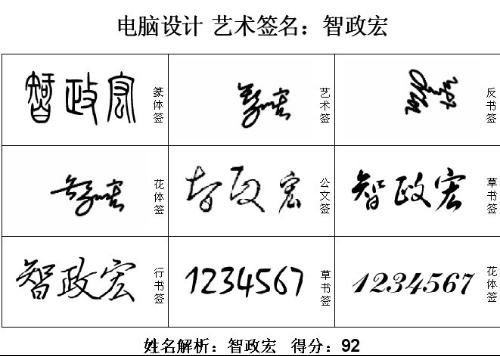 电脑设计 艺术签名：智政宏
智政宏 篆体签
智政宏 艺术签
智政宏 反书签
智政宏 花体签
智政宏 公文签
智政宏 草书签
智政宏 行书签
1234567 草书签
1234567 花体签
姓名解析：智政宏 得分：92